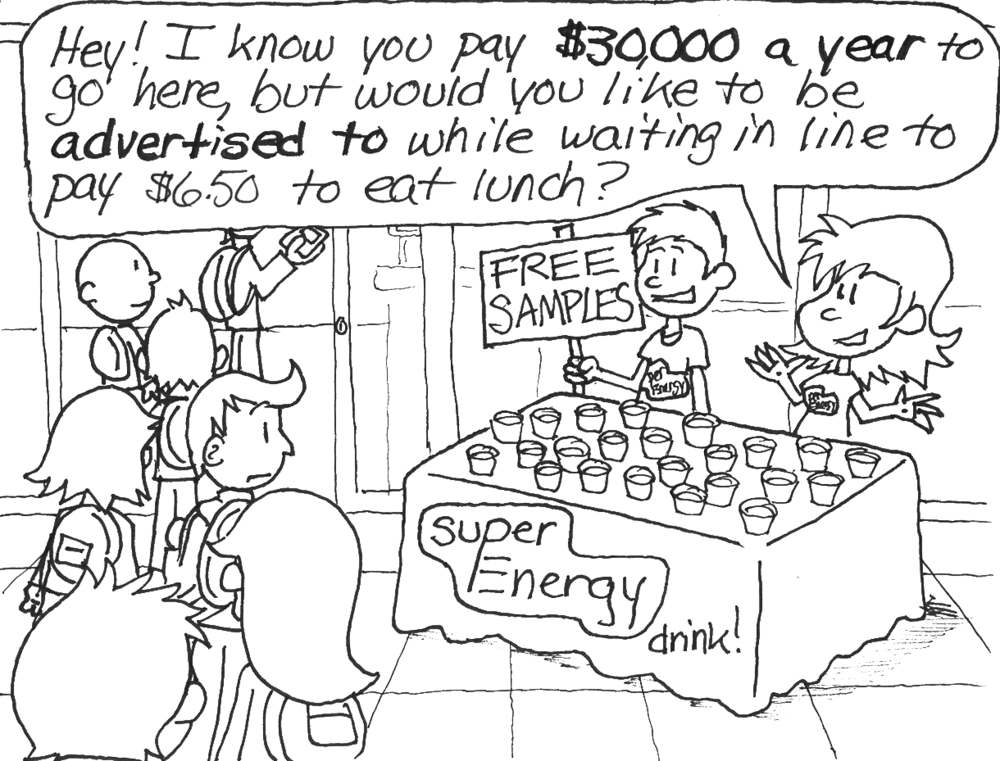 Hey! I know you pay $30,000 a year to
go here, but would you like to be
advertised to while waiting in line to
pay $6.50 to eat lunch?
FREE
SAMPLES
per
Energy
per
Energy
super
Energy
drink!